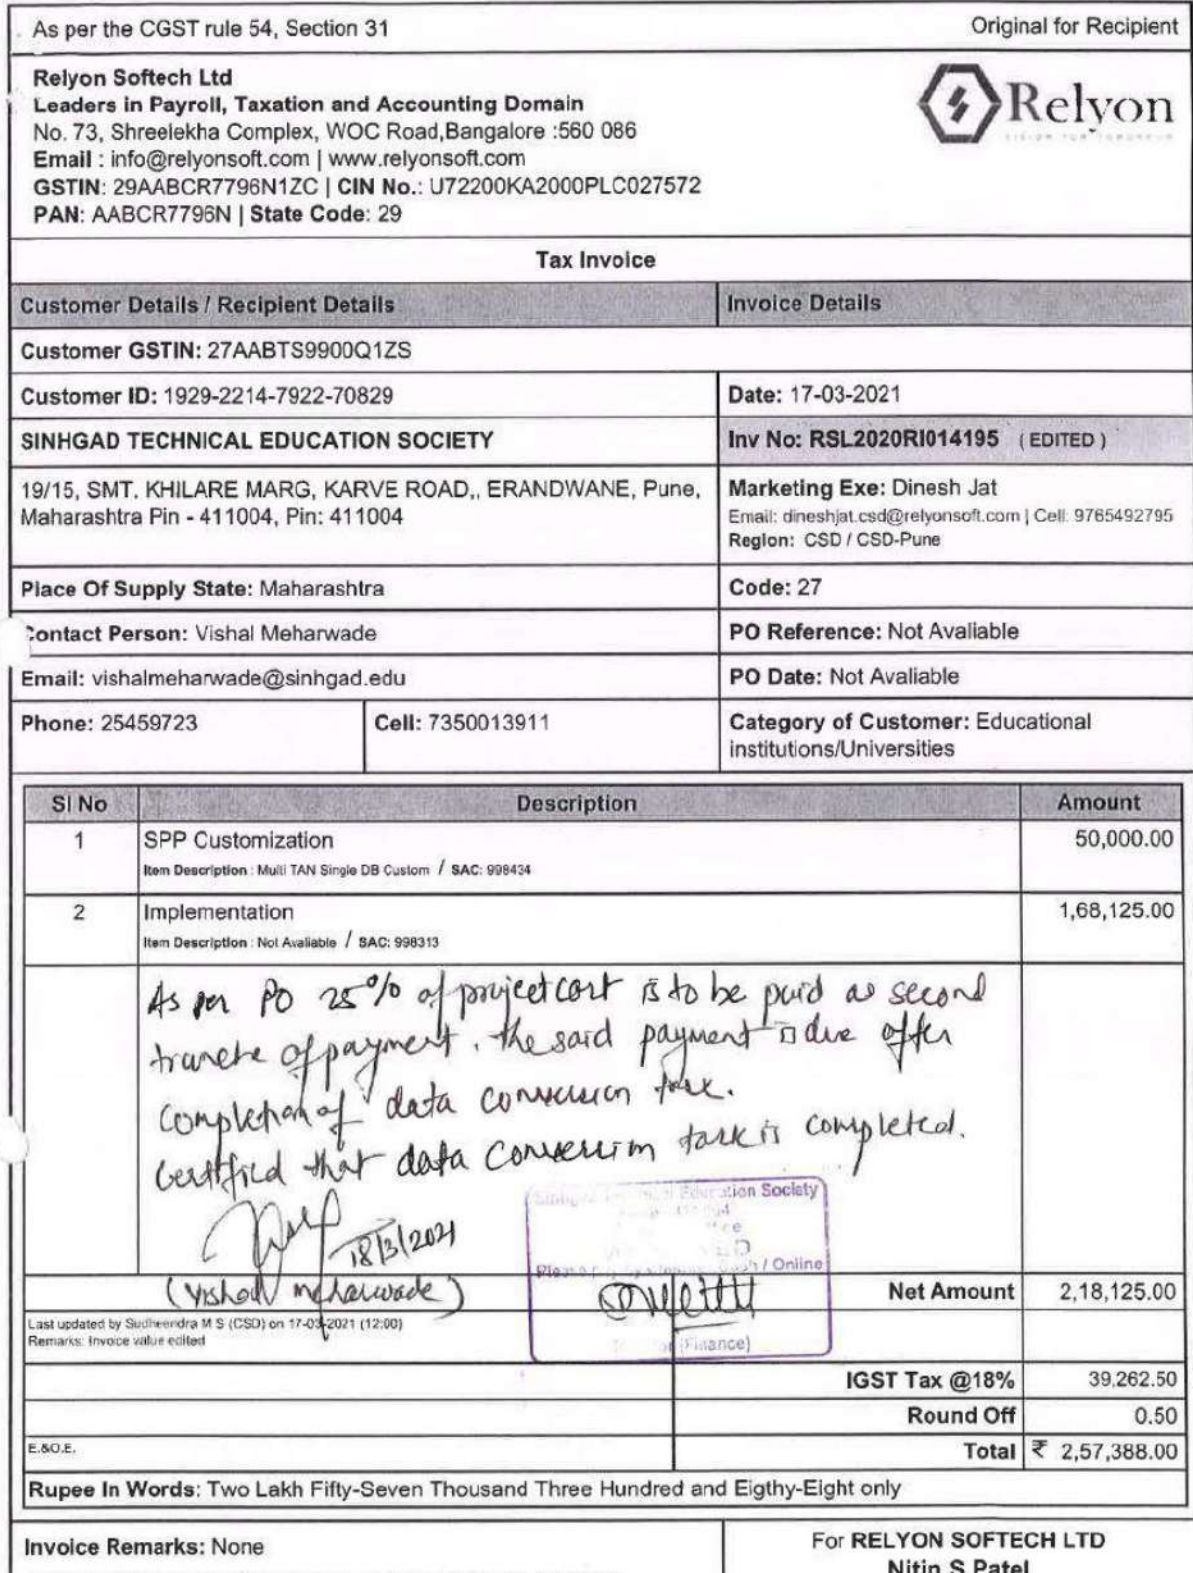 As per the CGST rule 54, Section 31
Original for Recipient
Relyon Softech Ltd
Leaders in Payroll, Taxation and Accounting Domain
No. 73, Shreelekha Complex, WOC Road,Bangalore :560 086
Email : info@relyonsoft.com | www.relyonsoft.com
GSTIN: 29AABCR7796N1ZC | CIN No.: U72200KA2000PLC027572
PAN: AABCR7796N | State Code: 29
Relyon
Tax Invoice
Customer Details / Recipient Details
Invoice Details
Customer GSTIN: 27AABTS9900Q1ZS
Customer ID: 1929-2214-7922-70829
Date: 17-03-2021
SINHGAD TECHNICAL EDUCATION SOCIETY
Inv No: RSL2020RI014195 ( EDITED )
19/15, SMT. KHILARE MARG, KARVE ROAD,, ERANDWANE, Pune,
Maharashtra Pin - 411004, Pin: 411004
Marketing Exe: Dinesh Jat
Email: dineshjat.csd@relyonsoft.com | Cell: 9765492795
Region: CSD / CSD-Pune
Place Of Supply State: Maharashtra
Code: 27
Contact Person: Vishal Meharwade
PO Reference: Not Avaliable
Email: vishalmeharwade@sinhgad.edu
PO Date: Not Avaliable
Phone: 25459723
Cell: 7350013911
Category of Customer: Educational
institutions/Universities
Sl No Description Amount
1 SPP Customization 50,000.00
Item Description : Multi TAN Single DB Custom / SAC: 998434
2 Implementation 1,68,125.00
Item Description : Not Avaliable / SAC: 998313
As per PO 25% of project cost is to be paid as second
tranche of payment. The said payment is due after
completion of data conversion task.
Certified that data conversion task is completed.
18/3/2021
(Vishal Meharwade)
Education Society
/ Online
(Finance)
Net Amount 2,18,125.00
Last updated by Sudheendra M S (CSD) on 17-03-2021 (12:00)
Remarks: Invoice value edited
IGST Tax @18% 39,262.50
Round Off 0.50
E.&O.E.
Total ₹ 2,57,388.00
Rupee In Words: Two Lakh Fifty-Seven Thousand Three Hundred and Eigthy-Eight only
Invoice Remarks: None
For RELYON SOFTECH LTD
Nitin S Patel